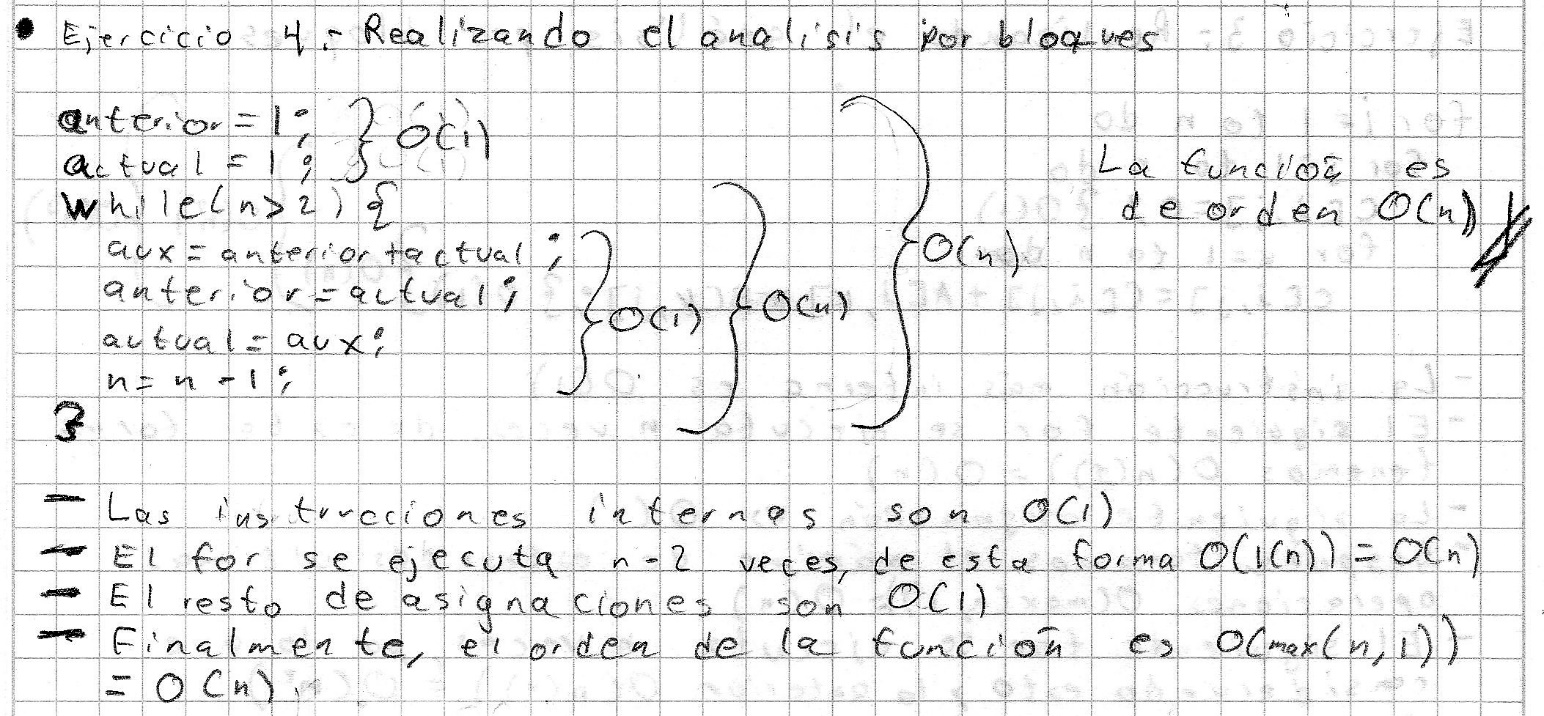 • Ejercicio 4.- Realizando el analisis por bloques
anterior = 1; } O(1)
actual = 1;
while(n>2){
aux = anterior + actual;
anterior = actual;
actual = aux;
n = n - 1;
} O(1) } O(n) } O(n)
}
La función es
de orden O(n)
- Las instrucciones internas son O(1)
- El for se ejecuta n-2 veces, de esta forma O(1(n)) = O(n)
- El resto de asignaciones son O(1)
- Finalmente, el orden de la función es O(max(n,1))
= O(n).